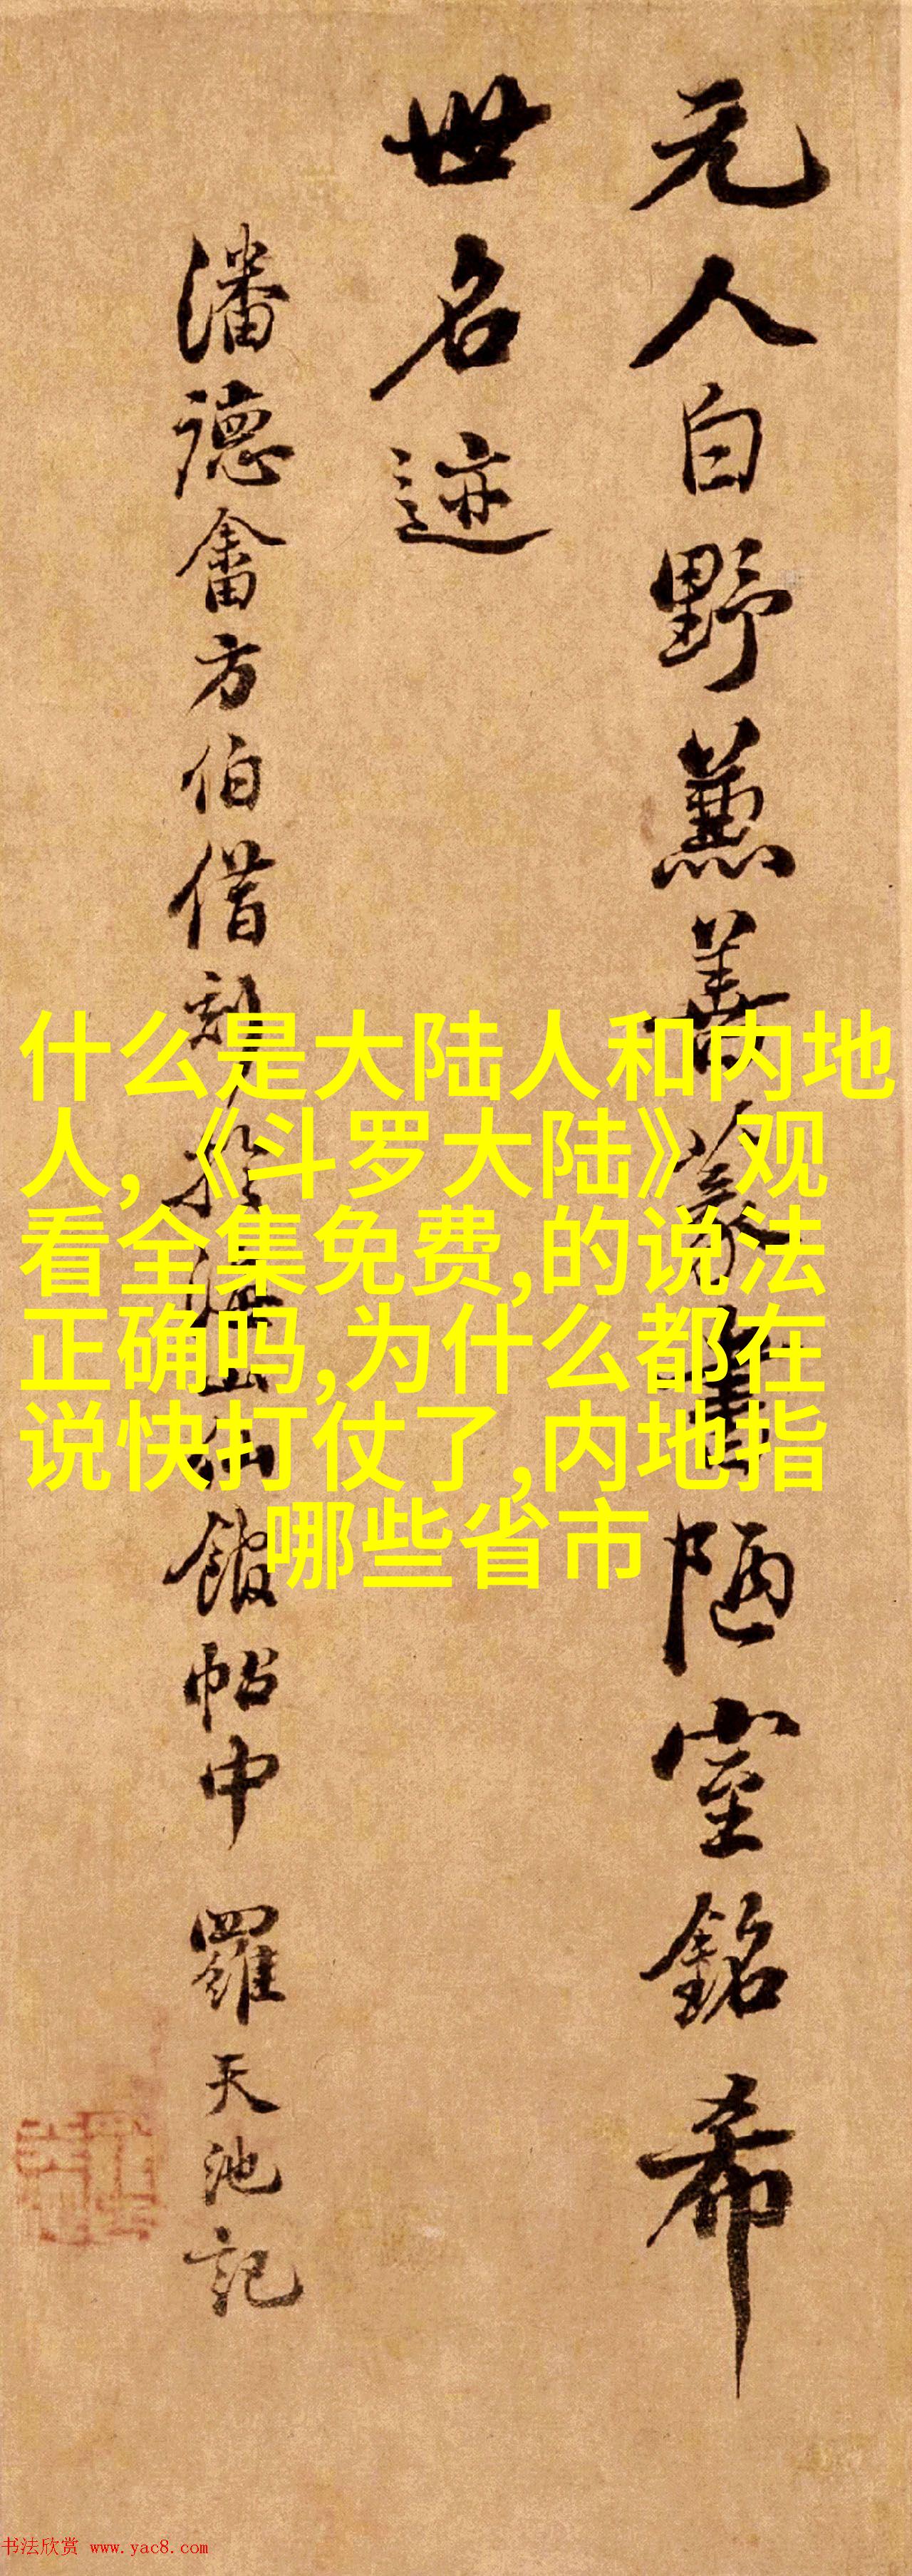 元人白野藁善篆書陋室銘希
世名迹
潘德畬方伯借刻於海山仙館帖中 羅天池記
什么是大陆人和内地
人,《斗罗大陆》观
看全集免费,的说法
正确吗,为什么都在
说快打仗了,内地指
哪些省市
书法欣赏 www.yac8.com